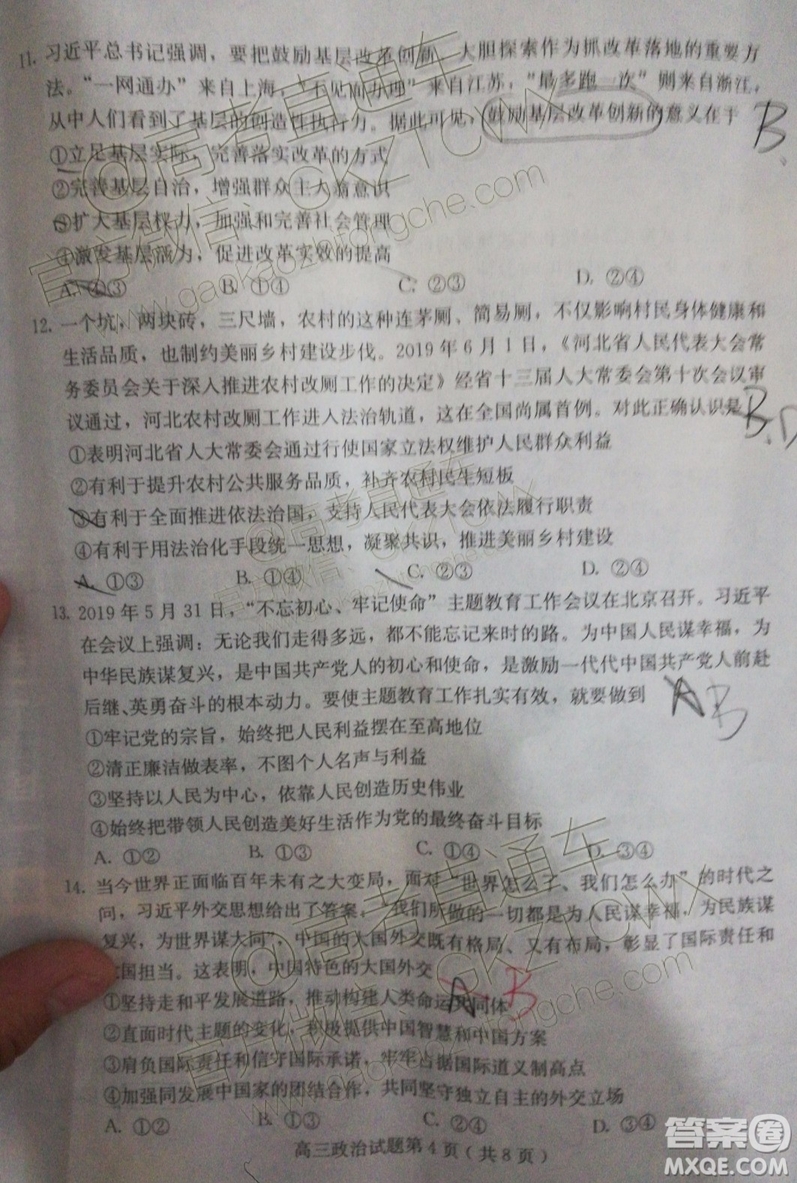 11. 习近平总书记强调，要把鼓励基层改革创新、大胆探索作为抓改革落地的重要方
法。“一网通办”来自上海，“不见面办理”来自江苏，“最多跑一次”则来自浙江，
从中人们看到了基层的创造性执行力。据此可见，鼓励基层改革创新的意义在于
B
①立足基层实际，完善落实改革的方式
②完善基层自治，增强群众主人翁意识
③扩大基层权力，加强和完善社会管理
④激发基层活力，促进改革实效的提高
A. ①③ B. ①④ C. ②③ D. ②④
12. 一个坑，两块砖，三尺墙，农村的这种连茅厕、简易厕，不仅影响村民身体健康和
生活品质，也制约美丽乡村建设步伐。2019年6月1日，《河北省人民代表大会常
务委员会关于深入推进农村改厕工作的决定》经省十三届人大常委会第十次会议审
议通过，河北农村改厕工作进入法治轨道，这在全国尚属首例。对此正确认识是
B.D
①表明河北省人大常委会通过行使国家立法权维护人民群众利益
②有利于提升农村公共服务品质，补齐农村民生短板
③有利于全面推进依法治国，支持人民代表大会依法履行职责
④有利于用法治化手段统一思想，凝聚共识，推进美丽乡村建设
A. ①③ B. ①④ C. ②③ D. ②④
13. 2019年5月31日，“不忘初心、牢记使命”主题教育工作会议在北京召开。习近平
在会议上强调：无论我们走得多远，都不能忘记来时的路。为中国人民谋幸福，为
中华民族谋复兴，是中国共产党人的初心和使命，是激励一代代中国共产党人前赴
后继、英勇奋斗的根本动力。要使主题教育工作扎实有效，就要做到
A B
①牢记党的宗旨，始终把人民利益摆在至高地位
②清正廉洁做表率，不图个人名声与利益
③坚持以人民为中心，依靠人民创造历史伟业
④始终把带领人民创造美好生活作为党的最终奋斗目标
A. ①② B. ①③ C. ①④ D. ③④
14. 当今世界正面临百年未有之大变局，面对“世界怎么了、我们怎么办”的时代之
问，习近平外交思想给出了答案。“我们所做的一切都是为人民谋幸福，为民族谋
复兴，为世界谋大同”，中国的大国外交既有格局、又有布局，彰显了国际责任和
国担当。这表明，中国特色的大国外交
A B
①坚持走和平发展道路，推动构建人类命运共同体
②直面时代主题的变化，积极提供中国智慧和中国方案
③肩负国际责任和信守国际承诺，牢牢占据国际道义制高点
④加强同发展中国家的团结合作，共同坚守独立自主的外交立场
A. ①② B. ①③ C. ②④ D. ③④
高三政治试题第4页（共8页）
@高考直通车
官方微信：GKZTCWX
www.gaokaozhitongche.com
@高考直通车
官方微信：GKZTCWX
@高考直通车
官方微信：GKZTCWX
www.gaokaozhitongche.com
答案圈
MXQE.COM